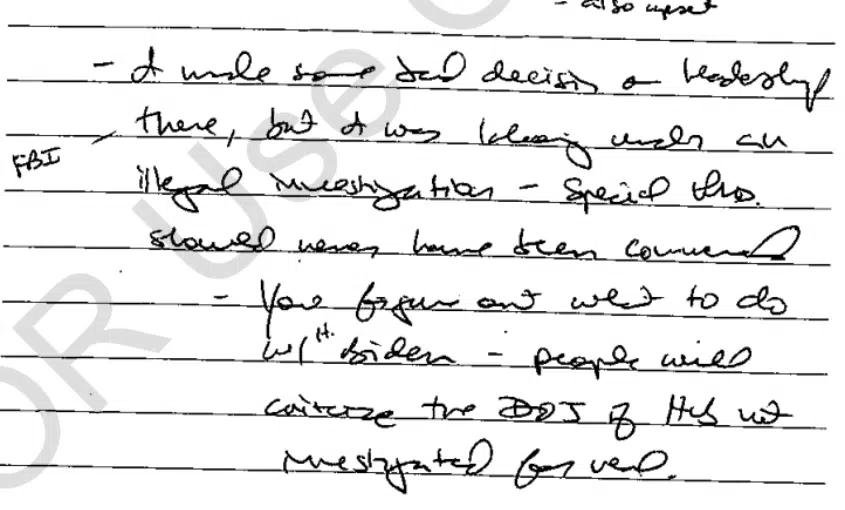 - also upset
- I made some bad decisions on leadership
there, but I was laboring under an
FBI
illegal investigation - Special
should never have been commenced
- You figure out what to do
w/ H. Biden - people will
criticize the DOJ if He's not
investigated for real.
OR Use